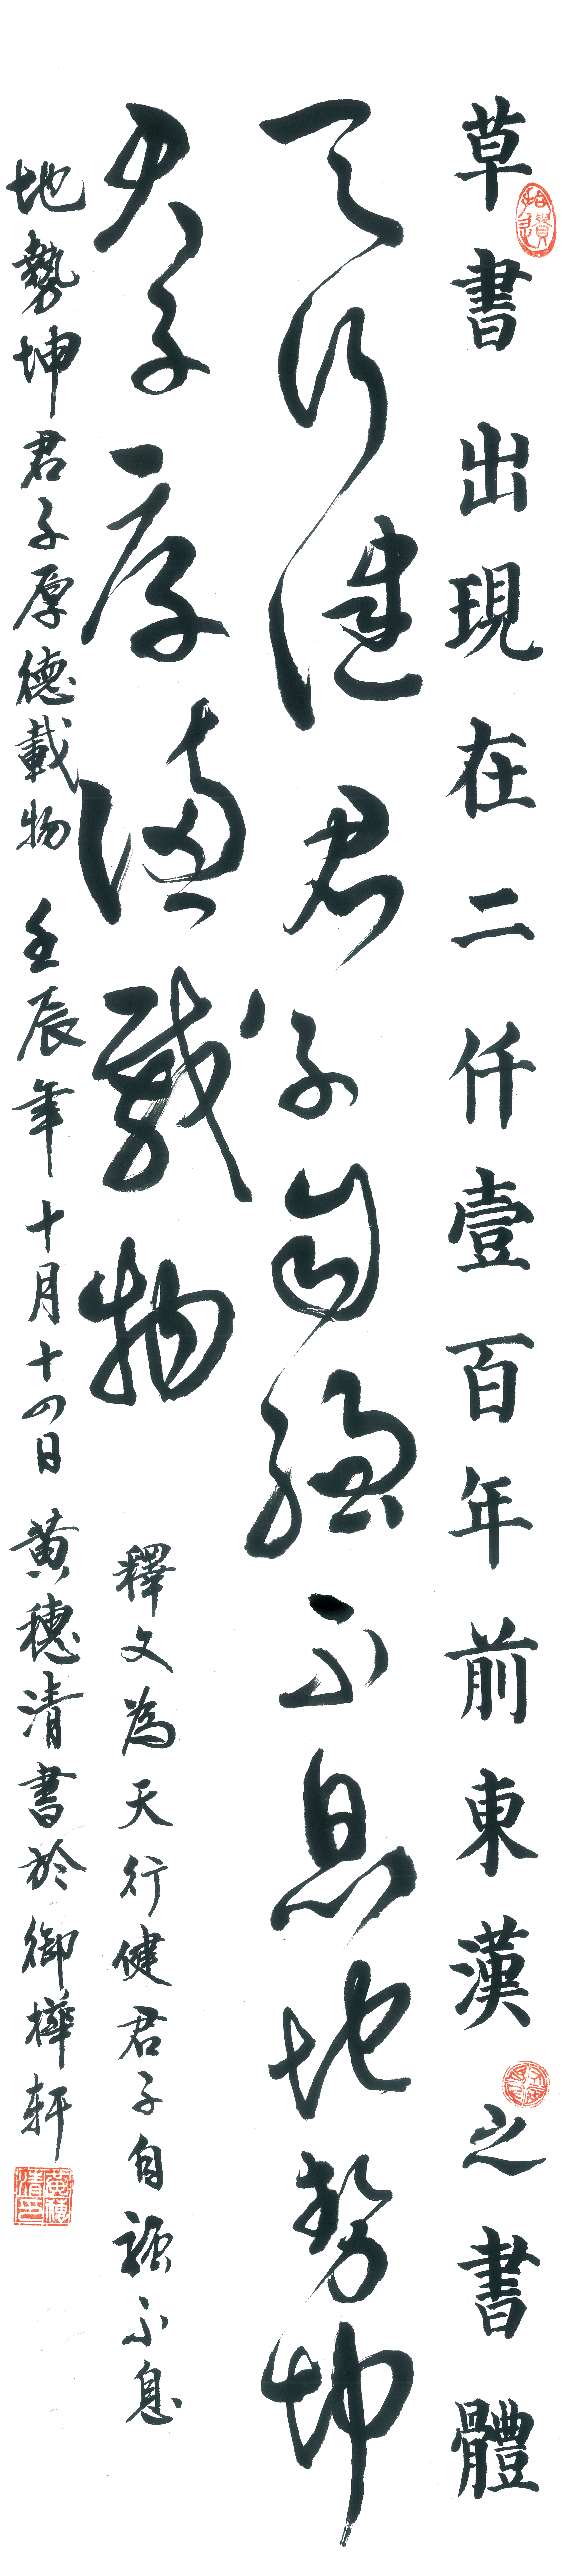 草書出現在二仟壹百年前東漢之書體
天行健君子自強不息地勢坤
君子厚德載物
釋文為天行健君子自強不息
地勢坤君子厚德載物 壬辰年十月十四日 黃穗清書於御樺軒
黃穗清印